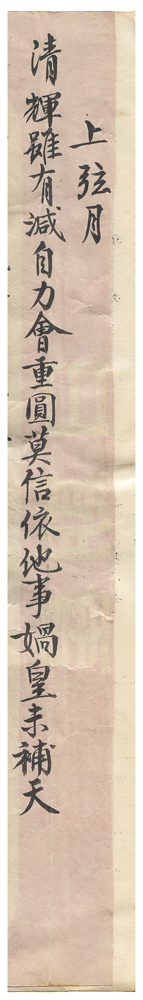 上弦月
清輝雖有減自力會重圓莫信依他事媧皇未補天